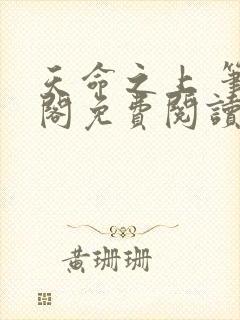 天命之上 筆
閣免費閱讀
黃珊珊